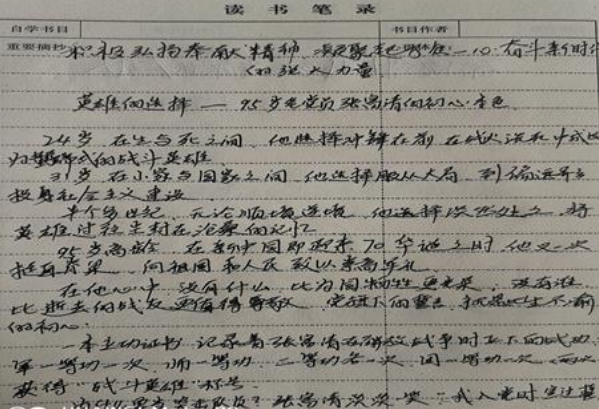 读书笔录
自学书目 书目作者
重要摘抄 积极弘扬奉献精神，凝聚起 万众一心奋斗新时代
的强大力量
英雄的选择——95岁老党员张富清的初心本色
24岁，在生与死之间，他选择冲锋在前，在战火洗礼中成
的战斗英雄
31岁，在小家与国家之间，他选择服从大局，到偏远异乡
投身社会主义建设
半个多世纪，无论顺境逆境，他选择深藏功名，将
英雄过往尘封在沧桑的记忆
95岁高龄，在新中国即将迎来70华诞之时，他又一次
挺直脊梁，向祖国和人民致以崇高军礼
在他心中，没有什么，比为国牺牲更光荣，没有谁
比逝去的战友更值得尊敬，党旗下的誓言，就是此生不渝
的初心。
一本立功证书，记录着张富清在解放战争时立下的战功
军一等功一次，师一等功、二等功各一次，团一等功一次，两次
获得“战斗英雄”称号
为什么要当突击队员？张富清淡淡一笑：“我入党时宣过誓